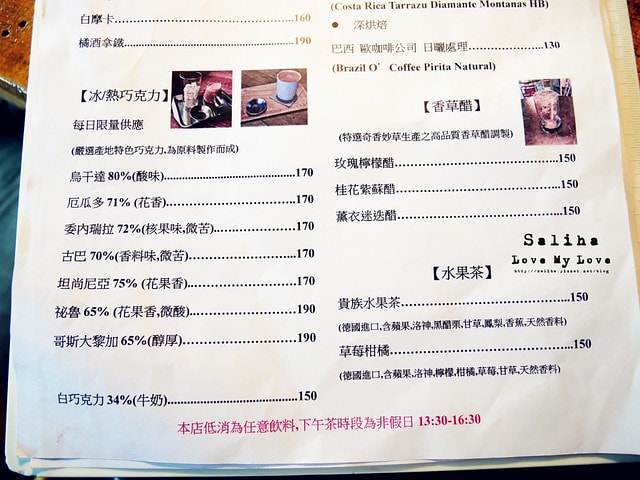 白摩卡 160
橘酒拿鐵 190
【冰/熱巧克力】
每日限量供應
(嚴選產地特色巧克力,為原料製作而成)
烏干達 80%(酸味) 170
厄瓜多 71% (花香) 170
委內瑞拉 72%(核果味,微苦) 170
古巴 70%(香料味,微苦) 170
坦尚尼亞 75% (花果香) 170
祕魯 65% (花果香,微酸) 190
哥斯大黎加 65%(醇厚) 190
白巧克力 34%(牛奶) 150
(Costa Rica Tarrazu Diamante Montanas HB)
● 深烘焙
巴西 歐咖啡公司 日曬處理 130
(Brazil O' Coffee Pirita Natural)
【香草醋】
(特選奇香妙草生產之高品質香草醋調製)
玫瑰檸檬醋 150
桂花紫蘇醋 150
薰衣迷迭醋 150
Saliha
Love My Love
http://saliha.pixnet.net/blog
【水果茶】
貴族水果茶 150
(德國進口,含蘋果,洛神,黑醋栗,甘草,鳳梨,香蕉,天然香料)
草莓柑橘 150
(德國進口,含蘋果,洛神,檸檬,柑橘,草莓,甘草,天然香料)
本店低消為任意飲料,下午茶時段為非假日 13:30-16:30